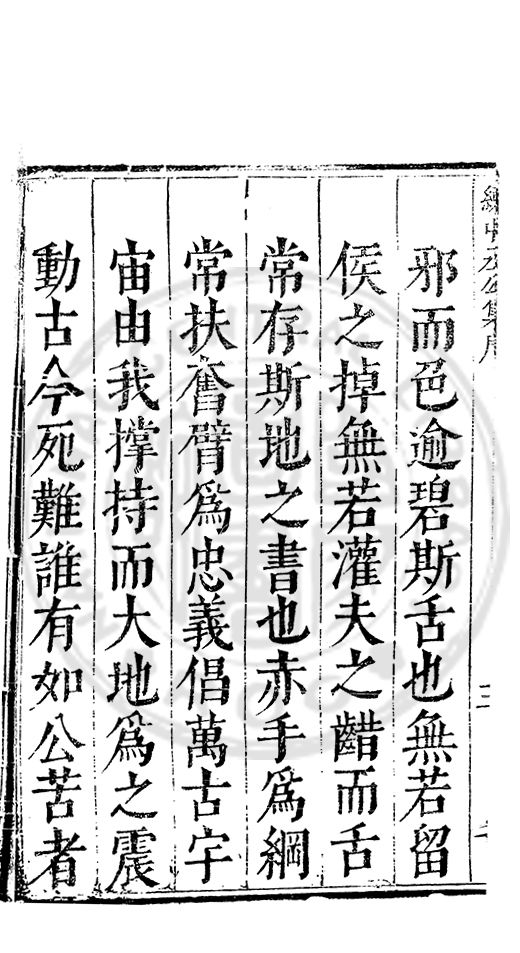 邪而色逾碧斯舌也無若留
侯之掉無若灌夫之齰而舌
常存斯地之書也赤手為綱
常扶奮臂為忠義倡萬古宇
宙由我撑持而大地為之震
動古今死難誰有如公苦者